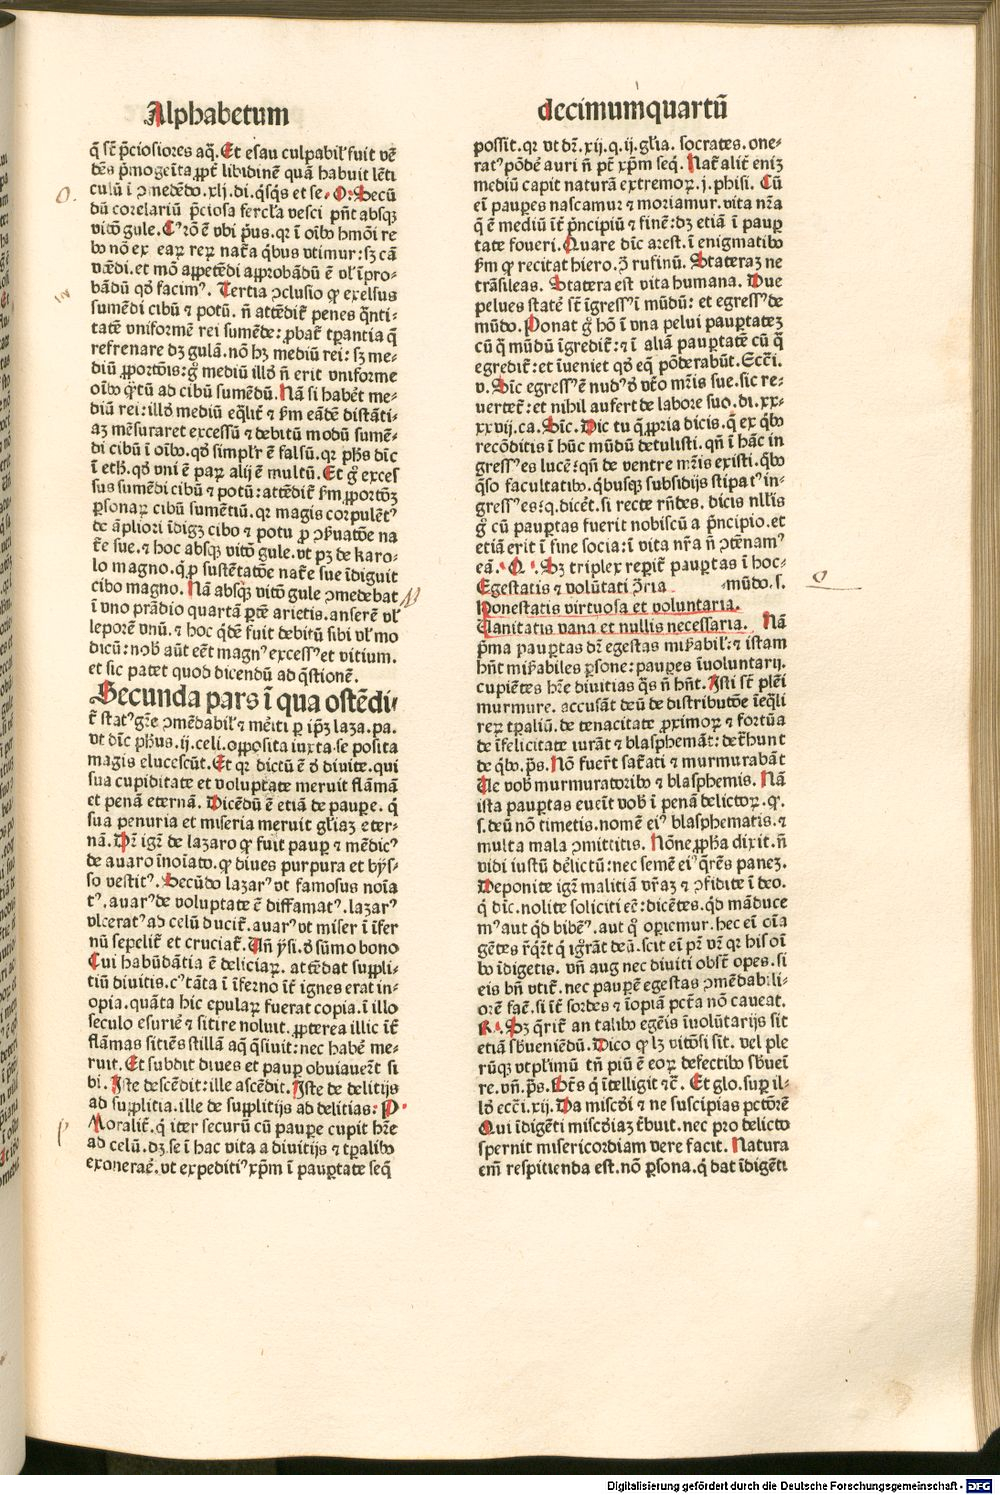 Alphabetum decimumquartū
q̄ sūt p̄ciosiores aq̄. Et esau culpabil' fuit vē
dēs p̄mogeīta ꝓpt̄ libidinē quā habuit lēti
culū ī ꝯmedēdo.xlj.di.q̇sq̇s et se. O. Secū
dū corelariū p̄ciosa fercl'a vesci pn̄t absqꝫ
vitō gule. Cꝰ rō ē vbi p̄us.qꝛ ī oībꝰ hmōi re
bꝰ nō ex eaꝝ reꝝ nat̄a q̇bus vtimur: sꝫ cā
vtēdi.et mō appetēdi approbādū ē vl' īpro-
bādū qd' facimꝰ. Tertia ꝯclusio ꝙ excessus
sumēdi cibū ⁊ potū. nō attēdit̄ penes q̄nti-
tatē vniformē rei sumēde: ꝓbat̄ tꝑantia q̄
refrenare dꝫ gulā.nō hꝫ mediū rei: sꝫ me-
diū ꝓportōis: gͦ mediū illd' nō erit vniforme
oībꝰ q̄ntū ad cibū sumēdū. Nā si habēt me-
diū rei: illd' mediū eq̄lit̄ ⁊ ẜm eādē distāti-
aꝫ mēsuraret excessū ⁊ debitū modū sumē-
di cibū ī oībꝰ. qd' simplr̄ ē falsū. qꝛ ph̄s dīc
ī eth. qd' vni ē paꝝ alij ē multū. Et gͦ exces
sus sumēdi cibū ⁊ potū: attēdit̄ ẜm ꝓportōꝫ
ꝑsonaꝝ cibū sumētiū. qꝛ magis corpulētꝰ
de āpliori īdigꝫ cibo ⁊ potu ꝓ ꝯẜuatōe na
t̄e sue. ⁊ hoc absqꝫ vitō gule. vt pꝫ de karo-
lo magno. q̇ ꝓ sustētatōe nat̄e sue īdiguit
cibo magno. Nā absqꝫ vitō gule ꝯmedebat
ī vno prādio quartā ꝑtē arietis. anserē vl'
leporē vnū. ⁊ hoc q̇dē fuit debitū sibi vl' mo
dicū: nob' aūt eēt magnꝰ excessꝰ et vitium.
et sic patet quod dicendū ad q̄stionē.
Secunda pars ī qua ostēdi
t̄ statꝰ gr̄e ꝯmēdabil' ⁊ mēiti ꝑ ip̄ꝫ laza. pa.
vt dīc ph̄us.ij.celi.opposita iuxta se posita
magis elucescūt. Et qꝛ dictū ē d' diuite. qui
sua cupiditate et voluptate meruit flāmā
et penā eternā. Dicēdū ē etiā de paupe. q̇
sua penuria et miseria meruit gl'iaꝫ eter-
nā. Pͥ igr̄ de lazaro ꝙ fuit pauꝑ ⁊ mēdicꝰ
de auaro īnoīato. ꝙ diues purpura et bys-
so vestitꝰ. Secūdo lazarꝰ vt famosus noīa
tꝰ. auarꝰ de voluptate ē diffamatꝰ. lazarꝰ
vlceratꝰ ad celū ducit̄. auarꝰ vt miser ī īfer
nū sepelit̄ et cruciat̄. Vn̄ ysi. d' sūmo bono
Cui habūdātia ē deliciaꝝ. attēdat suppli-
tiū diuitis. cꝰ tāta ī īferno īt̄ ignes erat in-
opia. quāta hic epulaꝝ fuerat copia. ī illo
seculo esuriē ⁊ sitire noluit. ꝓpterea illic īt̄
flāmas sitiēs stillā aq̄ q̄siuit: nec habē me-
ruit. Et subdit diues et pauꝑ obuiauēt si
bi. Iste descēdit: ille ascēdit. Iste de delitijs
ad supplitia. ille de supplitijs ad delitias: P.
Moralit̄. q̇ iter securū cū paupe cupit hr̄e
ad celū. dꝫ se ī hac vita a diuitijs ⁊ tꝑalibꝰ
exoneraē. vt expeditꝰ xp̄m ī pauꝑtate seq̇
possit. qꝛ vt dr̄. xij. q. ij. gl'ia. socrates. one-
ratꝰ pōdē auri nō pt̄ xp̄m seq̇. Nat̄alit̄ enīꝫ
mediū capit naturā extremoꝝ. j. phisi. Cū
eī paupes nascamur ⁊ moriamur. vita nr̄a
q̄ ē mediū īt̄ p̄ncipiū ⁊ finē: dꝫ etiā ī pauꝑ
tate foueri. Quare dīc arest. ī enigmatibꝰ
ẜm ꝙ recitat hiero. ꝯ̄ rufinū. Stateraꝫ ne
trāsileas. Statera est vita humana. Due
pelues statē sūt īgressꝰ ī mūdū: et egressꝰ de
mūdo. Ponat gͦ hō ī vna pelui pauꝑtateꝫ
cū q̄ mūdū īgredit̄: ⁊ ī aliā pauꝑtatē cū q̄
egredit̄: et īueniet qd' eq̄ pōderabūt. Ecc̄i.
v. Sic egressꝰ ē nudꝰ d' vt̄o mr̄is sue. sic re-
uertet̄: et nihil aufert de labore suo. di. xx-
xxvij. ca. Sic. Dic tu q̄ ꝓpria dicis. q̄ ex q̇bꝰ
recōditis ī hūc mūdū detulisti. qn̄ ī hāc in
gressꝰ es lucē: qn̄ de ventre mr̄is existi. q̇bꝰ
q̄so facultatibꝰ. q̇busqꝫ subsidijs stipatꝰ in-
gressꝰ es: q. dicēt. si recte rn̄des. dicis nll'is
gͦ cū pauꝑtas fuerit nobiscū a p̄ncipio. et
etiā erit ī fine socia: ī vita nr̄a nō ꝯtēnamꝰ
eā. Q. Sꝫ triplex reꝑit̄ pauꝑtas ī hoc-
Egestatis ⁊ volūtati ꝯ̄ria -mūdo. s.
Honestatis virtuosa et voluntaria.
Vanitatis vana et nullis necessaria. Nā
p̄ma pauꝑtas dr̄ egestas mi̇̄abil': ⁊ istam
hn̄t mi̇̄abiles ꝑsone: paupes īuoluntarij.
cupiētes hr̄e diuitias q̄s nō hn̄t. Isti sūt plēi
murmure. accusāt deū de distributōe īeq̄li
reꝝ tꝑaliū. de tenacitate ꝓximoꝝ ⁊ fortūa
de īfelicitate iurāt ⁊ blasphemāt: det̄hunt
de q̇bꝰ. p̄s. Nō fuer̄t sat̄ati ⁊ murmurabāt
Ue vob' murmuratoribꝰ ⁊ blasphemis. Nā
ista pauꝑtas eueīt vob' ī penā delictoꝝ. qꝛ.
s. deū nō timetis. nomē eiꝰ blasphematis. ⁊
multa mala ꝯmittitis. Nōne ꝓpha dixit. nō
vidi iustū delictū: nec semē eiꝰ q̄rēs paneꝫ.
Deponite igr̄ malitiā vr̄aꝫ ⁊ ꝯfidite ī deo.
q̇ dīc. nolite soliciti eē: dicētes. q̇d māduce
mꝰ aut q̇d bibēꝰ. aut qͦ opiemur. hec eī oīa
gētes r̄q̇rt̄ q̄ ignorāt deū. scit eī pr̄ vr̄ qꝛ his oī
bꝰ īdigetis. vn̄ aug nec diuiti obst̄ opes. si
eis bn̄ vtit̄. nec paupē egestas ꝯmēdabili-
orē faē. si īt̄ sordes ⁊ īopiā pct̄a nō caueat.
R. Sꝫ q̄rit̄ an talibꝰ egēis īuolūtarijs sit
etiā sb'ueniēdū. Dico ꝙ lꝫ vitōsi sit. vel ple
rūqꝫ vt plimū tn̄ piū ē eoꝝ defectibꝰ sb'ueī
re. vn̄. p̄s. Bt̄s q̇ ītelligit ⁊c̄. Et glo. suꝑ il-
ld' ecc̄i. xij. Da misc̄di ⁊ ne suscipias pctōrē
Qui īdigēti misc̄diaꝫ t̄buit. nec pro delicto
spernit misericordiam vere facit. Natura
em̄ respitienda est. nō ꝑsona. q̇ dat īdigēti
O.
N
p
Q
Digitalisierung gefördert durch die Deutsche Forschungsgemeinschaft - DFG